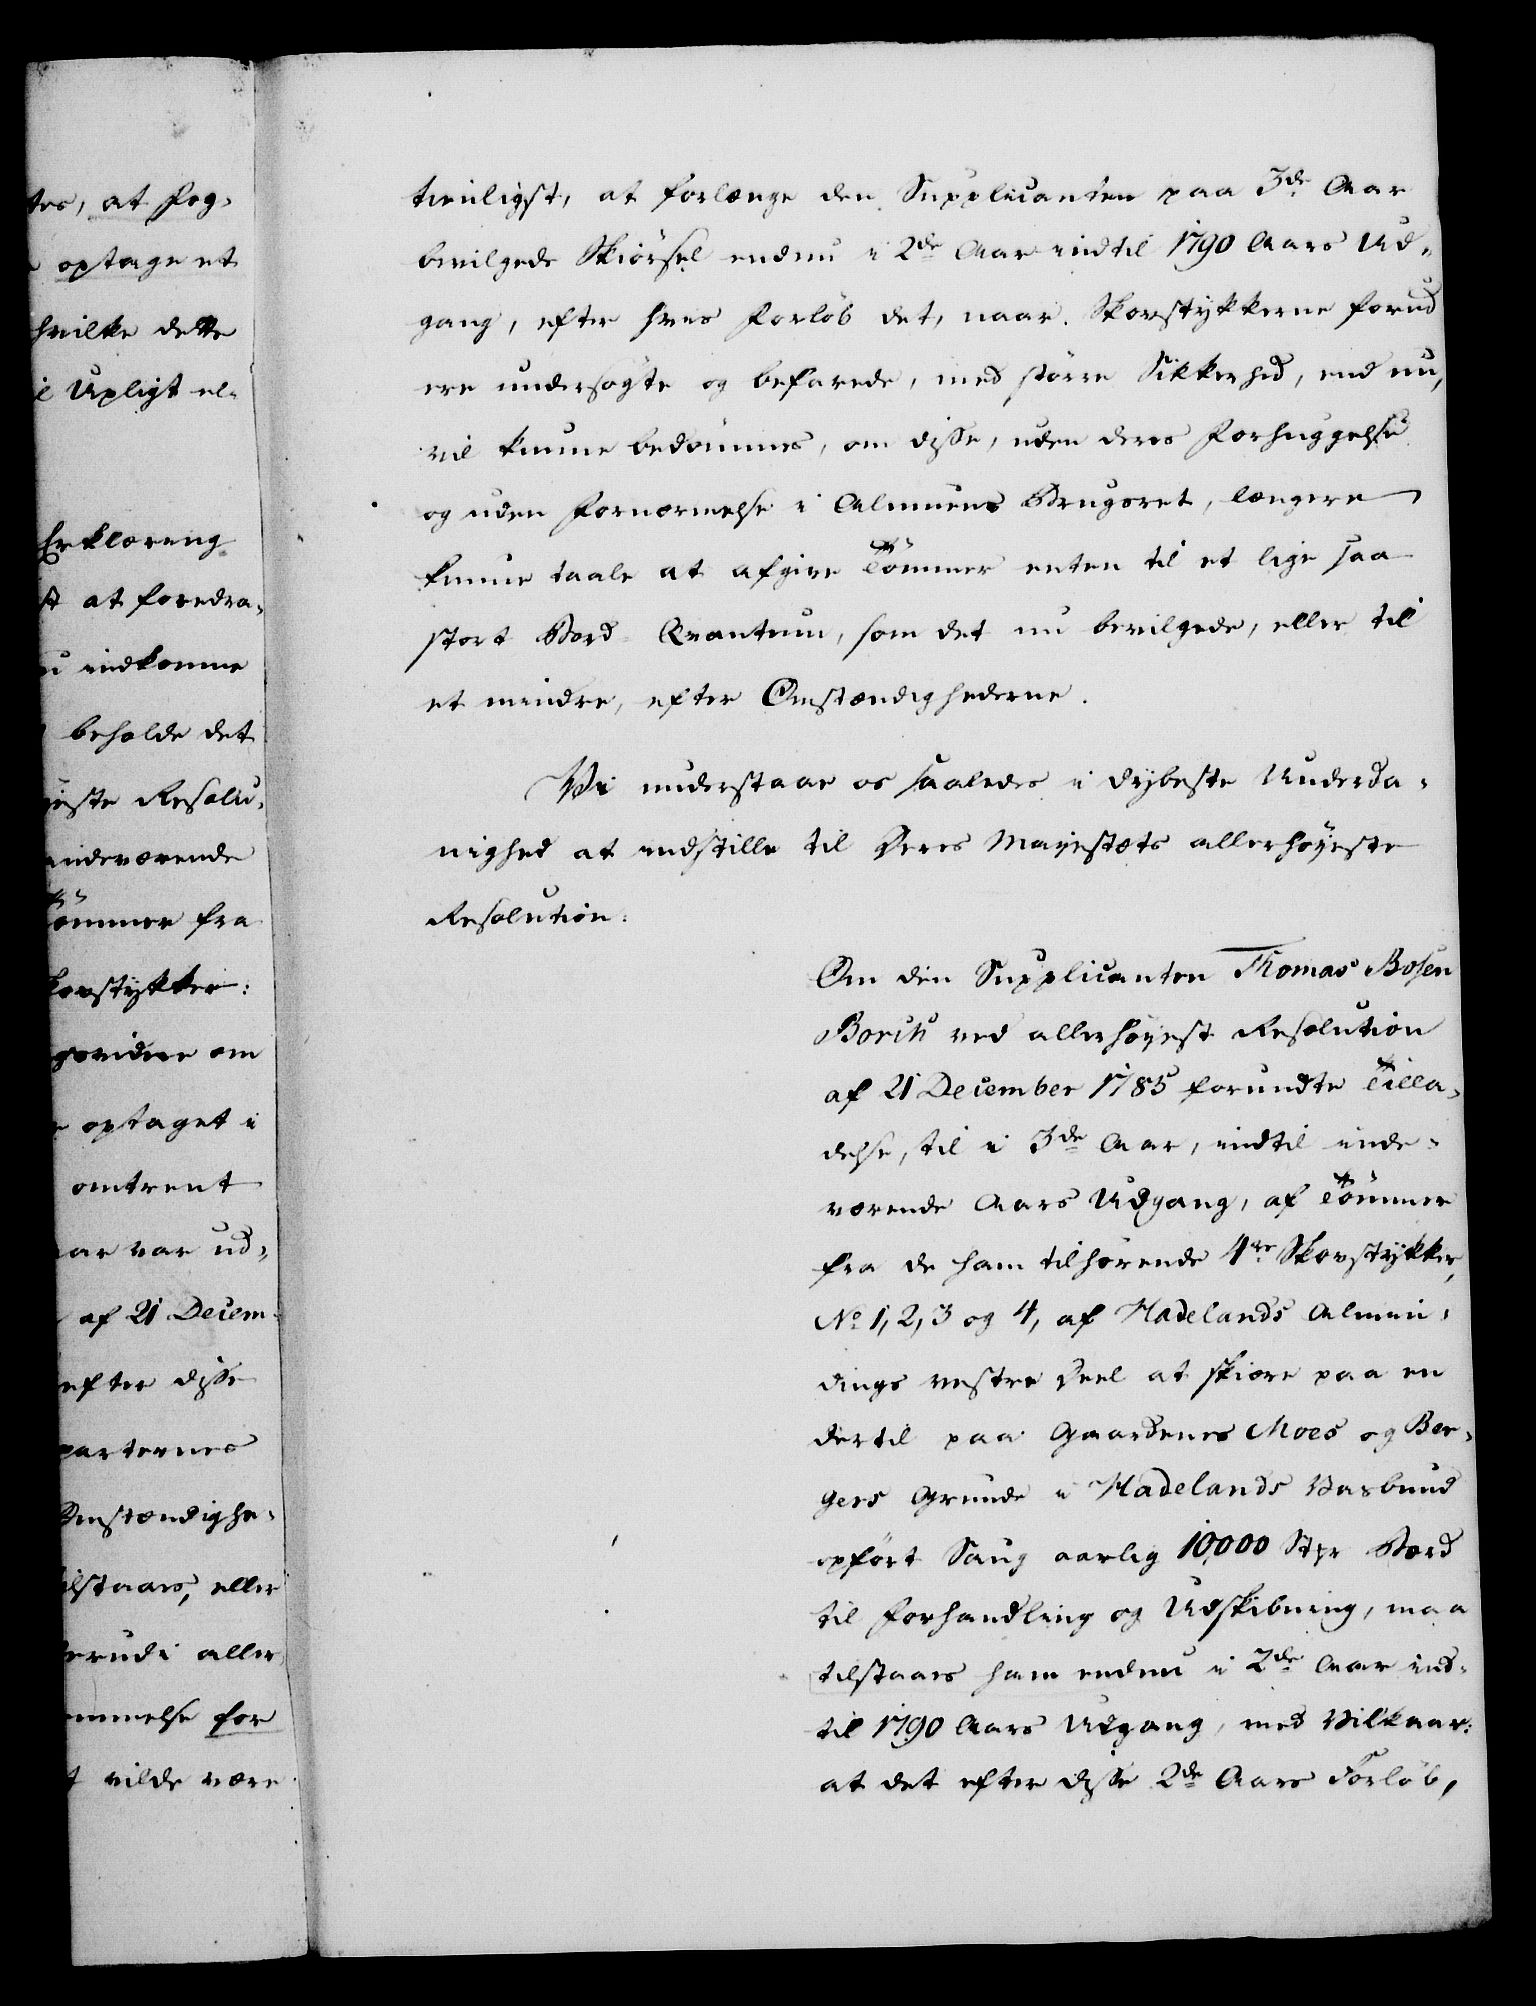 tes, at Fog-
optage et
hvilke dette
Upligt el-
Erklæring
at foredra-
indkomne
beholde det
Resolu-
indeværende
Tömmer fra
Skovstykker:
om
optaget i
omtrent
aar var ud-
af 21 Decem-
efter disse
parternes
Omstændighe-
tilstaaes, eller
aller
for
vilde være
tienligst, at forlænge den Supplicanten paa 3de Aar
bevilgede Skiörsel endnu i 2de Aar indtil 1790 Aars Ud-
gang, efter hves Forlöb det, naar Skovstykkerne forud
ere undersøgte og befarede, med större Sikkerhed, end nu,
vil kunne bedömmes, om disse, uden deres Forhuggelse
og uden Fornærmelse i Almuens Brugsret, længere
kunne taale at afgive Tömmer enten til et lige saa
stort Bord-Qvantum, som det nu bevilgede, eller til
et mindre, efter Omstændighederne.
Vi understaae os saaledes i dybeste Underda-
nighed at indstille til Deres Mayestæts allerhöyeste
Resolution:
Om den Supplicanten Thomas Bosen
Borch ved allerhöyest Resolution
af 21 December 1785 forundte Tilla-
delse, til i 3de Aar, indtil inde-
værende Aars Udgang, af Tömmer
fra de ham tilhörende 4re Skovstykker,
No 1, 2, 3 og 4, af Hadelands Almin-
dings vestre Deel at skiære paa en
dertil paa Gaardenes Moes og Ber-
gers Grunde i Hadelands Vasbund
opfört Saug aarlig 10,000 Stkr Bord
til Forhandling og Udskibning, maa
tilstaaes ham endnu i 2de Aar ind-
til 1790 Aars Udgang, med Vilkaar:
at det efter disse 2de Aars Forlöb,